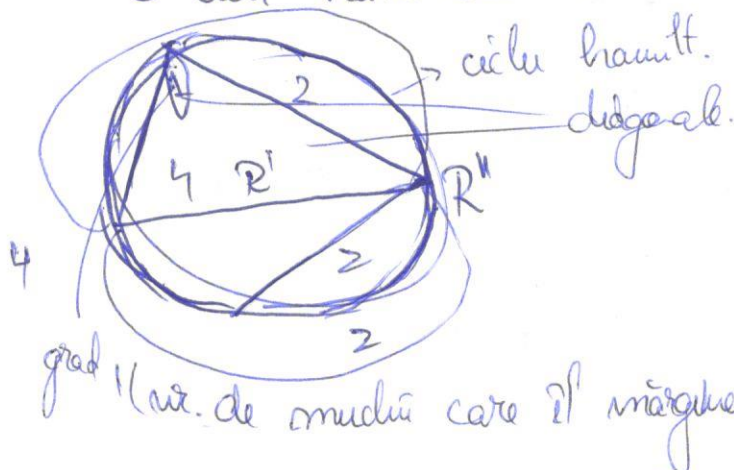 ciclu hamilt.
2
diagonale.
4 R' R"
4
2
2
grad "(nr. de muchii care îl mărgine